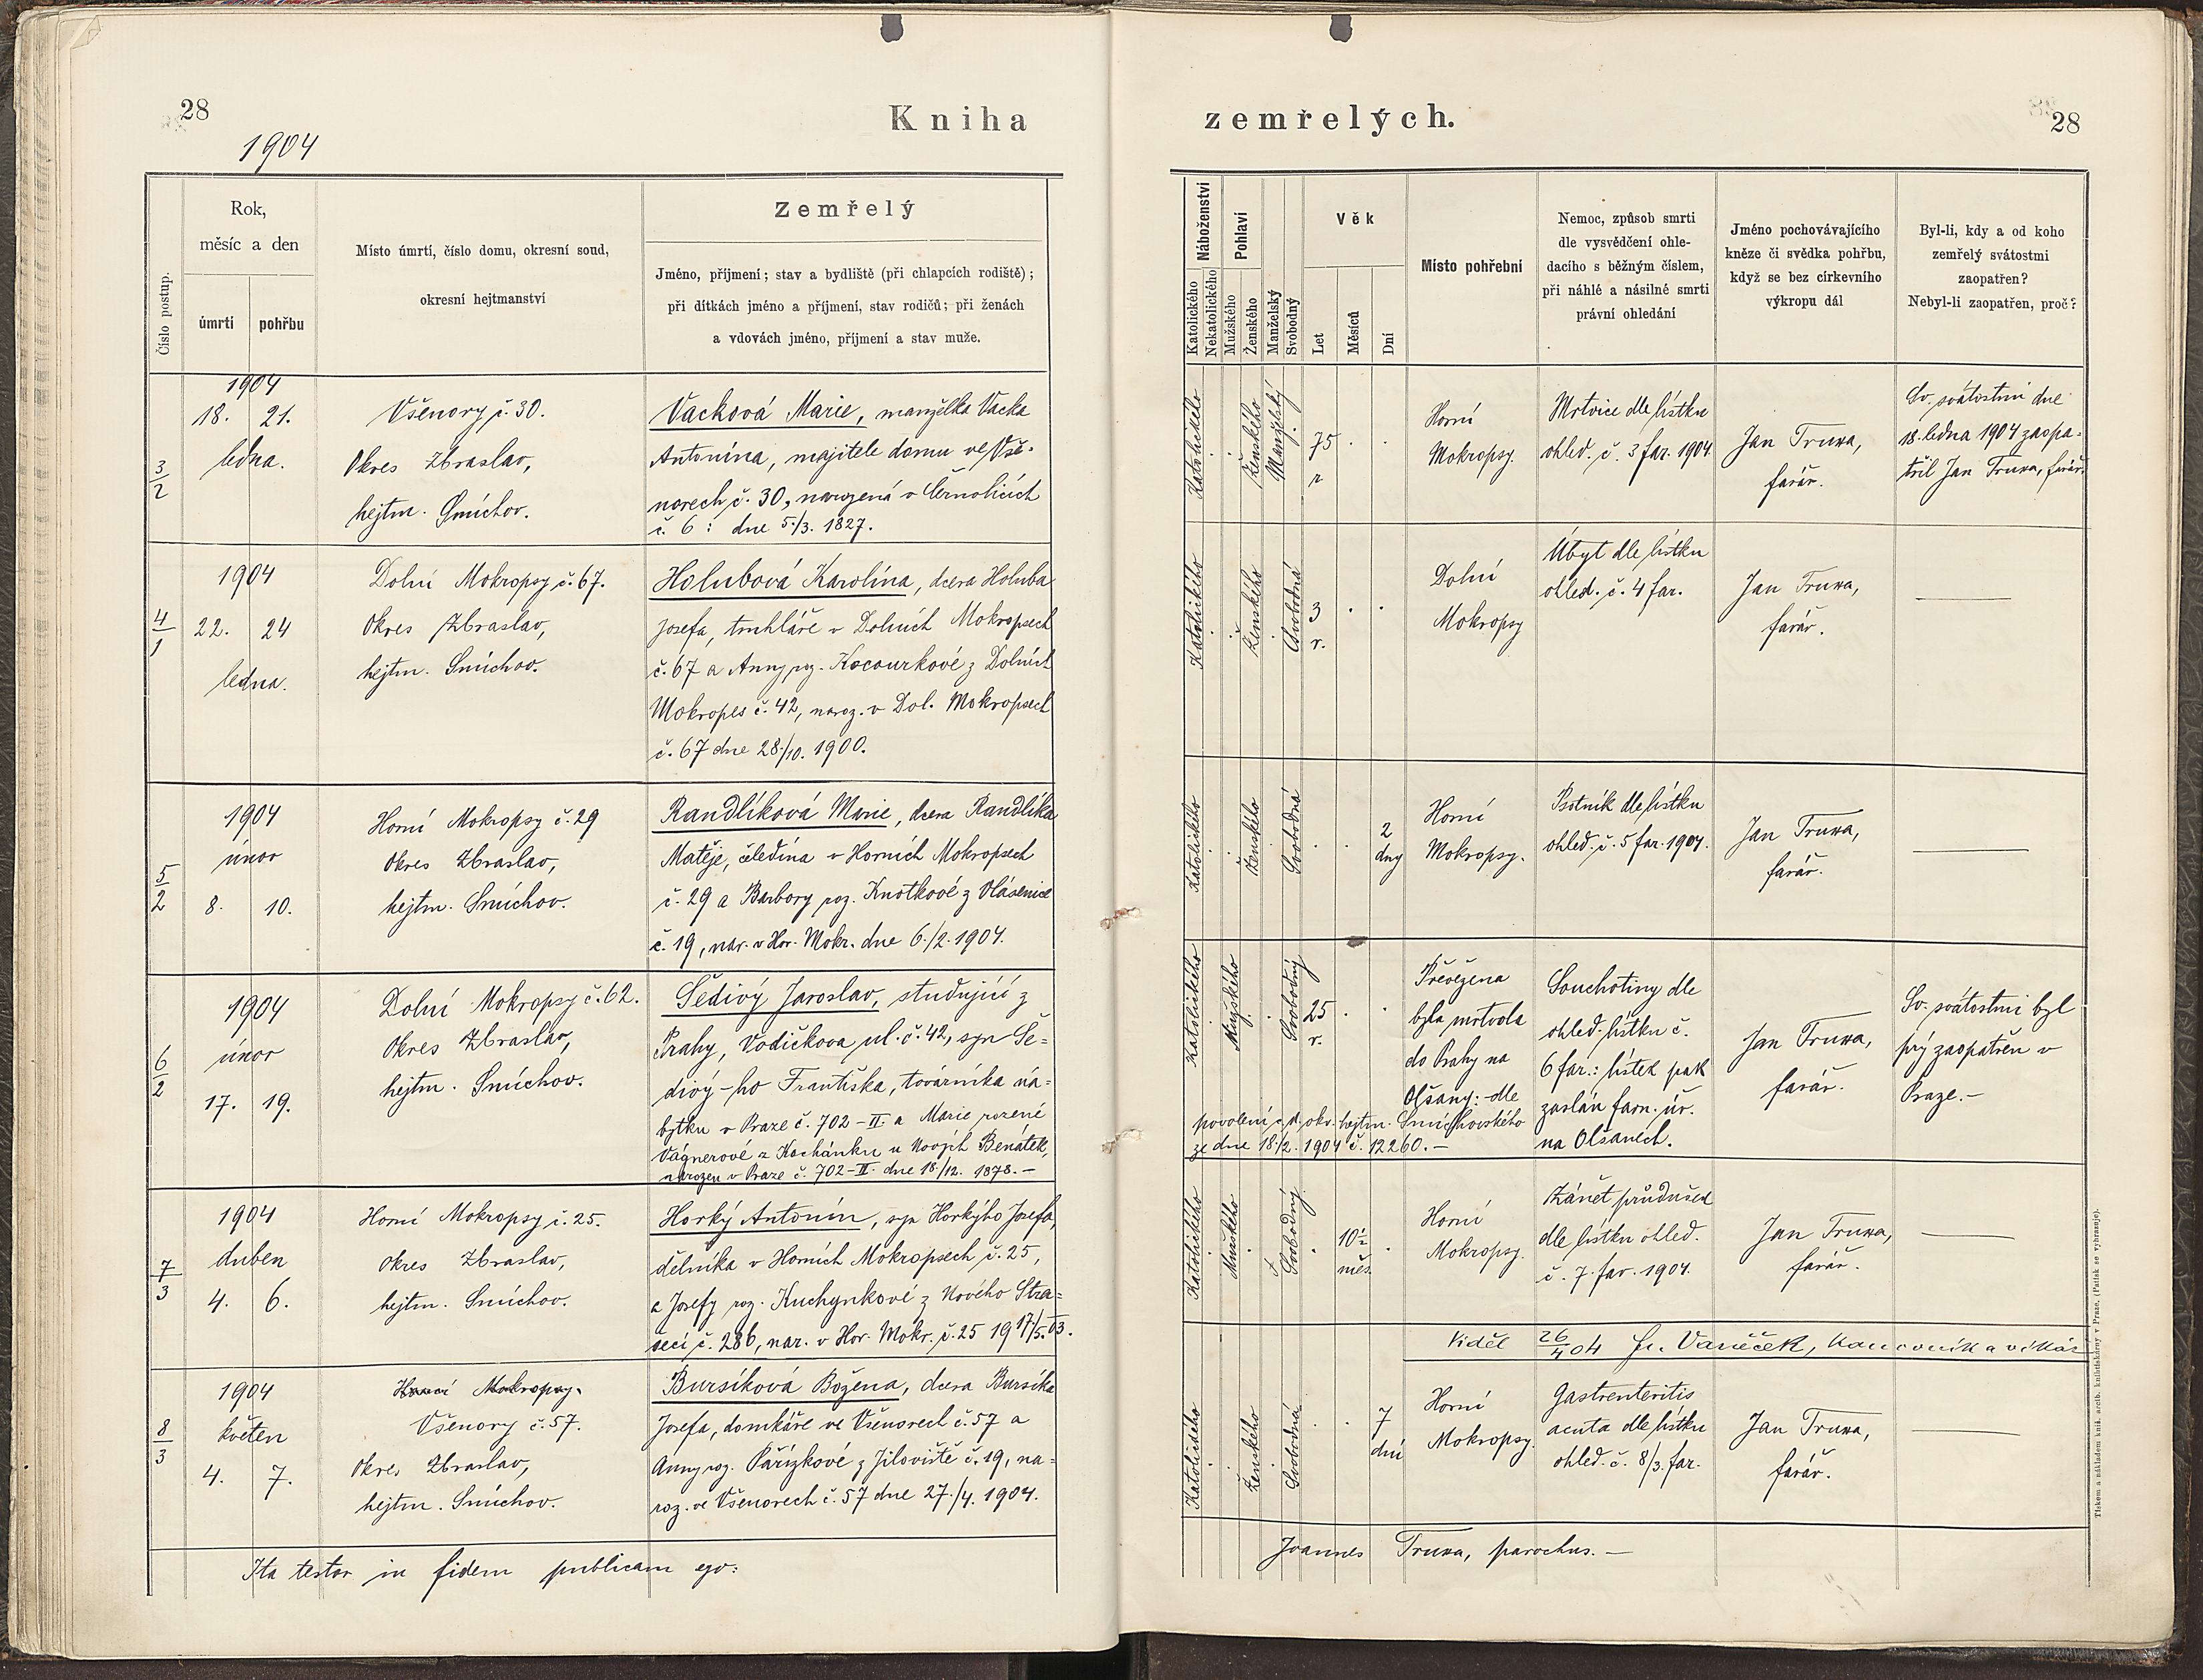 28
Kniha
1904
Číslo postup.
Rok,
měsíc a den
úmrtí
pohřbu
Místo úmrtí, číslo domu, okresní soud,
okresní hejtmanství
Zemřelý
Jméno, příjmení; stav a bydliště (při chlapcích rodiště);
při dítkách jméno a příjmení, stav rodičů; při ženách
a vdovách jméno, příjmení a stav muže.
3/2
1904
18. 21.
ledna.
Všenory č. 30.
Okres Zbraslav,
hejtm. Smíchov.
Vacková Marie, manželka Vacka
Antonína, majitele domu ve Vše-
norech č. 30, narozená v Černolicích
č. 6: dne 5./3. 1827.
4/1
1904
22. 24
ledna.
Dolní Mokropsy č. 67.
Okres Zbraslav,
hejtm. Smíchov.
Holubová Karolína, dcera Holuba
Josefa, truhláře v Dolních Mokropsech
č. 67 a Anny roz. Kocourkové z Dolních
Mokropes č. 42, naroz. v Dol. Mokropsech
č. 67 dne 28./10. 1900.
5/2
1904
únor
8. 10.
Horní Mokropsy č. 29
Okres Zbraslav,
hejtm. Smíchov.
Randlíková Marie, dcera Randlíka
Matěje, čeledína v Horních Mokropsech
č. 29 a Barbory roz. Knotkové z Vlásenice
č. 19, nar. v Hor. Mokr. dne 6./2. 1904.
6/2
1904
únor
17. 19.
Dolní Mokropsy č. 62.
Okres Zbraslav,
hejtm. Smíchov.
Šedivý Jaroslav, studující z
Prahy, Vodičkova ul. č. 42, syn Še=
divý-ho Františka, továrníka ná=
bytku v Praze č. 702-II. a Marie rozené
Vágnerové z Kochánku u Nových Benátek,
narozen v Praze č. 702-II. dne 18./12. 1878. –
7/3
1904
duben
4. 6.
Horní Mokropsy č. 25.
Okres Zbraslav,
hejtm. Smíchov.
Horký Antonín, syn Horkýho Josefa,
dělníka v Horních Mokropsech č. 25,
a Josefy roz. Kuchynkové z Nového Stra=
šecí č. 286, nar. v Hor. Mokr. č. 25 19 17/5. 03.
8/3
1904
květen
4. 7.
Horní Mokropsy.
Všenory č. 57.
Okres Zbraslav,
hejtm. Smíchov.
Bursíková Božena, dcera Bursíka
Josefa, domkáře ve Všenorech č. 57 a
Anny roz. Pařízkové z Jíloviště č. 19, na=
roz. ve Všenorech č. 57 dne 27./4. 1904.
Ita testor in fidem publicam ego:
zemřelých.
28
Náboženství
Katolického
Nekatolického
Pohlaví
Mužského
Ženského
Manželský
Svobodný
Věk
Let
Měsíců
Dní
Místo pohřební
Nemoc, způsob smrti
dle vysvědčení ohle-
dacího s běžným číslem,
při náhlé a násilné smrti
právní ohledání
Jméno pochovávajícího
kněze či svědka pohřbu,
když se bez církevního
výkropu dál
Byl-li, kdy a od koho
zemřelý svátostmi
zaopatřen?
Nebyl-li zaopatřen, proč?
Katolického
Ženského
Manželský
75
r.
Horní
Mokropsy.
Mrtvice dle lístku
ohled. č. 3 far. 1904.
Jan Truxa,
farář.
Sv. svátostmi dne
18. ledna 1904 zaopa-
třil Jan Truxa, farář.
Katolického
Ženského
Svobodná
3
r.
Dolní
Mokropsy
Úbyt dle lístku
ohled. č. 4 far.
Jan Truxa,
farář.
Katolického
Ženského
Svobodná
2
dny
Horní
Mokropsy.
Psotník dle lístku
ohled. č. 5 far. 1904.
Jan Truxa,
farář.
Katolického
Mužského
Svobodný
25
r.
Převezena
byla mrtvola
do Prahy na
Olšany: dle
povolení c. k. okr. hejtm. Smíchovského
ze dne 18./2. 1904 č. 12260. –
Souchotiny dle
ohled. lístku č.
6 far.: lístek pak
zaslán farn. úř.
na Olšanech.
Jan Truxa,
farář.
Sv. svátostmi byl
prý zaopatřen v
Praze. –
Katolického
Mužského
Svobodný
10½
měs.
Horní
Mokropsy.
Zánět průdušek
dle lístku ohled.
č. 7. far. 1904.
Jan Truxa,
farář.
Viděl 26/4 04 Fr. Vaněček, kanovník a vikář
Katolického
Ženského
Svobodná
7
dní
Horní
Mokropsy.
Gastrenteritis
acuta dle lístku
ohled. č. 8/3. far.
Jan Truxa,
farář.
Joannes Truxa, parochus. –
Tiskem a nákladem kníž. arcib. knihtiskárny v Praze. (Patisk se vyhrazuje).